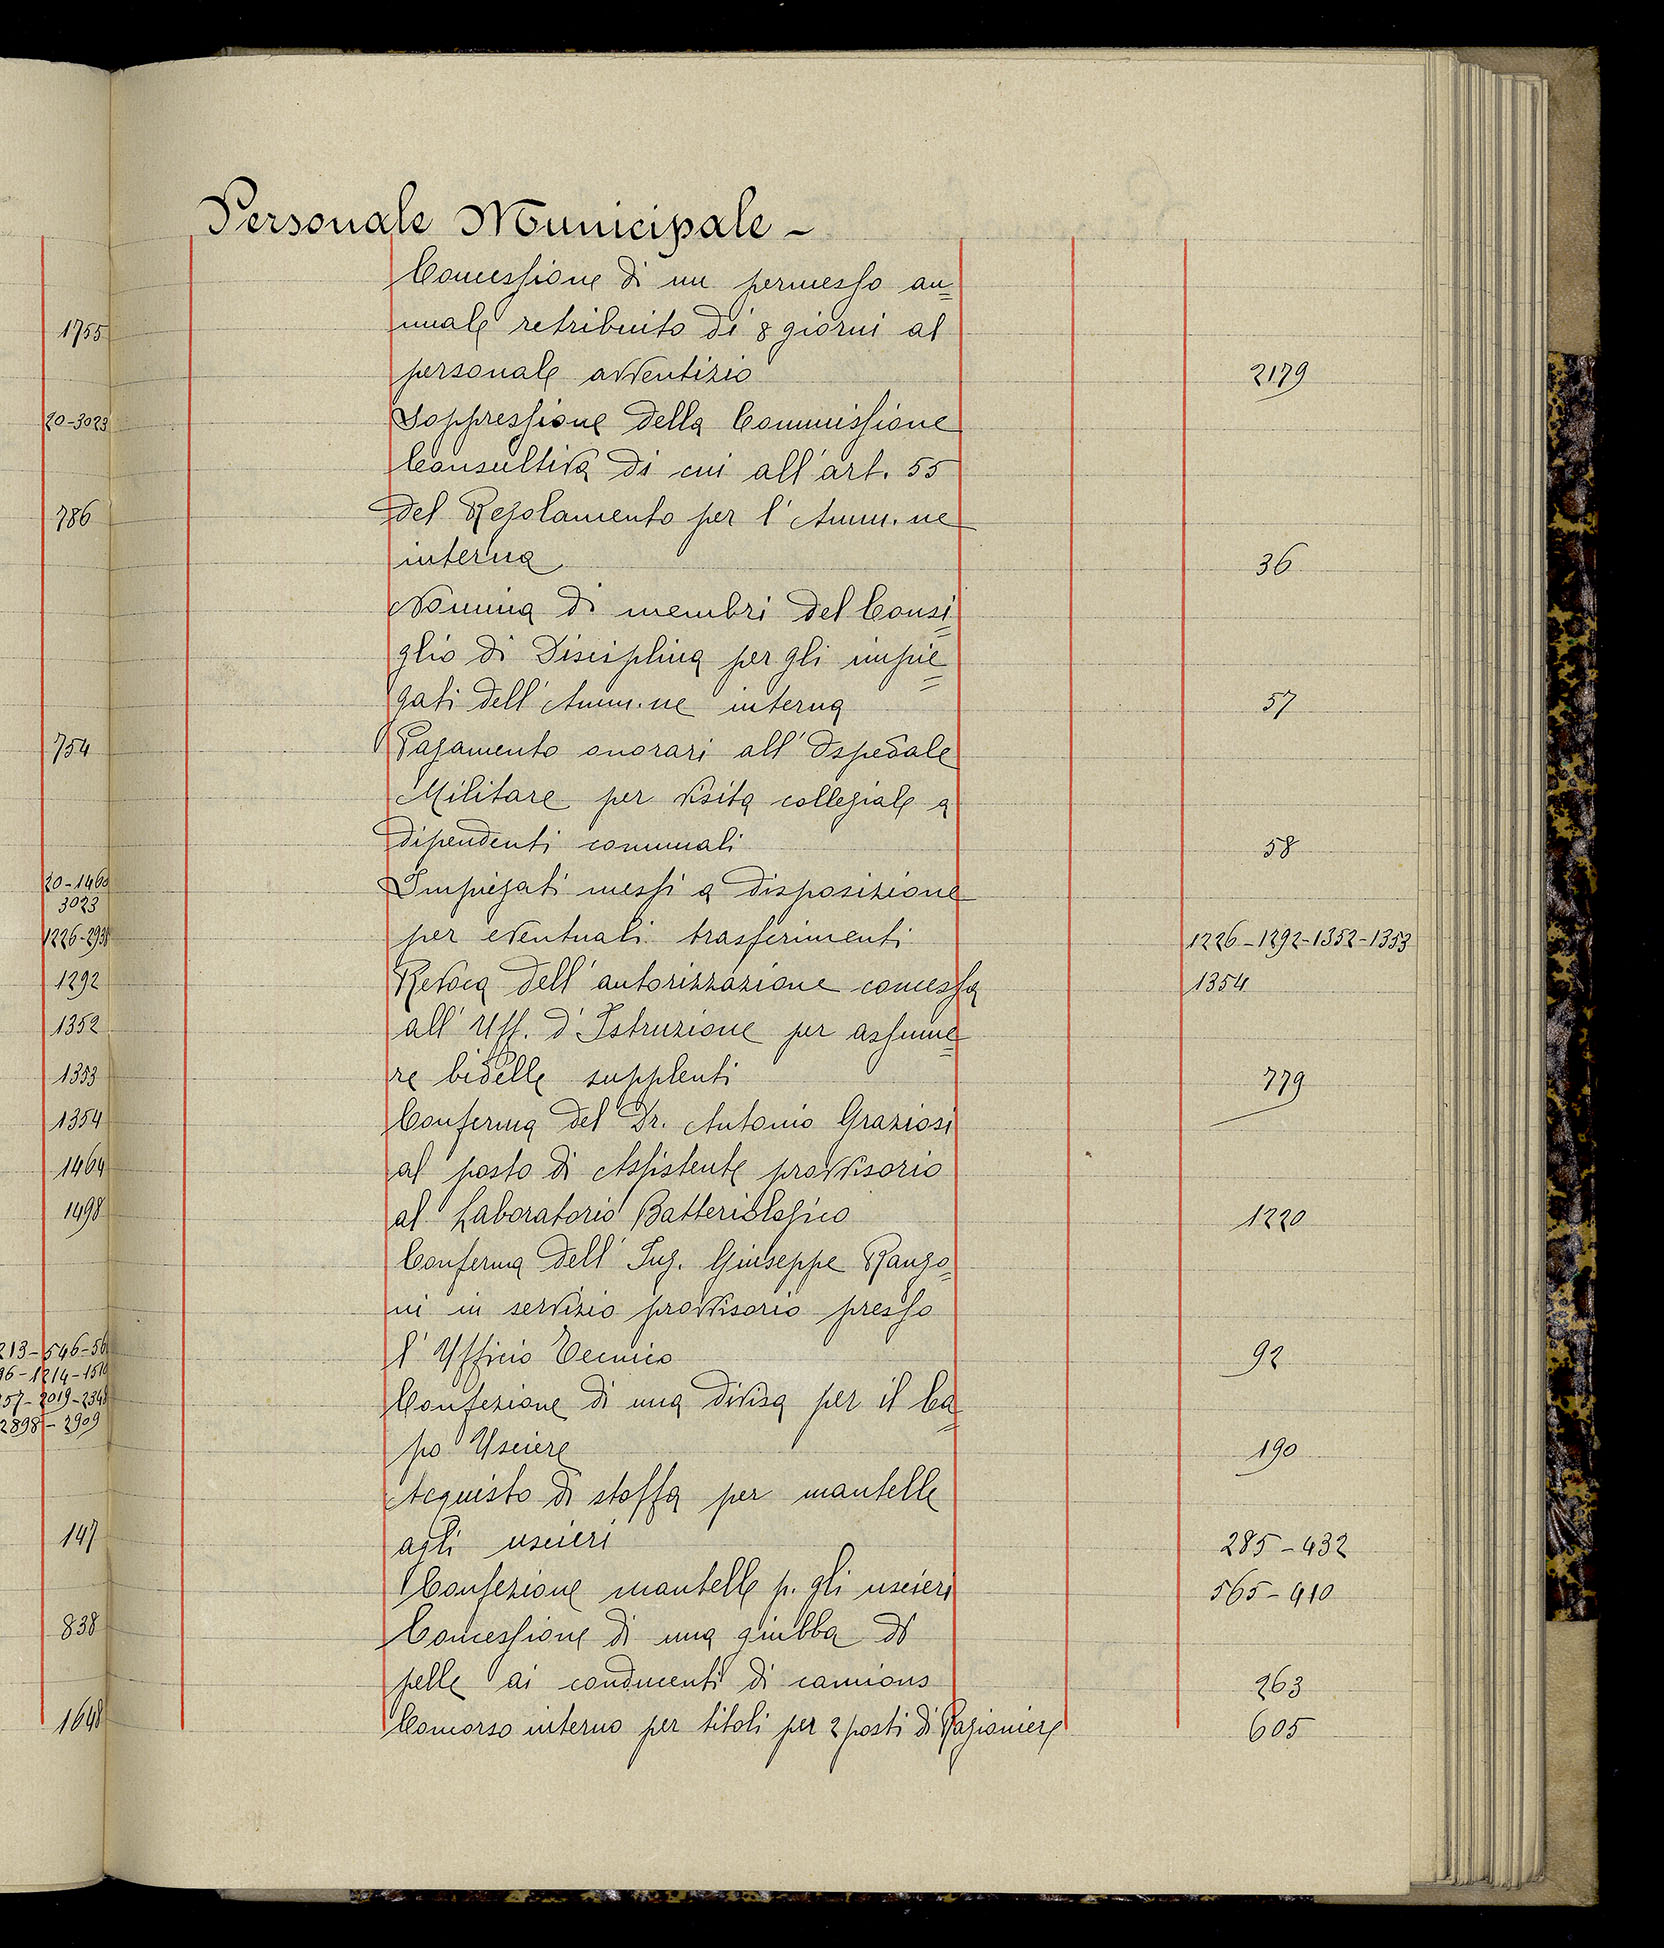 Personale Municipale -
Concessione di un permesso an=
nuale retribuito di 8 giorni al
personale avventizio 2179
Soppressione della Commissione
Consultiva di cui all'art. 55
del Regolamento per l'Amm.ne
interna 36
Nomina di membri del Consi=
glio di Disciplina per gli impie=
gati dell'Amm.ne interna 57
Pagamento onorari all'Ospedale
Militare per visita collegiale a
dipendenti comunali 58
Impiegati messi a disposizione
per eventuali trasferimenti 1226-1292-1352-1353
Revoca dell'autorizzazione concessa 1354
all'Uff. d'Istruzione per assume=
re bidelle supplenti 779
Conferma del Dr. Antonio Graziosi
al posto di Assistente provvisorio
al Laboratorio Batteriologico 1220
Conferma dell'Ing. Giuseppe Ranzo=
ni in servizio provvisorio presso
l'Ufficio Tecnico 92
Confezione di una divisa per il Ca=
po Usciere 190
Acquisto di stoffa per mantelle
agli uscieri 285-432
Confezione mantelle p. gli uscieri 565-910
Concessione di una giubba di
pelle ai conducenti di camions 263
Concorso interno per titoli per 2 posti di Ragioniere 605
1755
20-3023
786
754
20-1460
3023
1226-2938
1292
1352
1353
1354
1464
1498
213-546-56
96-1214-1510
257-2019-2348
2898-2909
147
838
1648